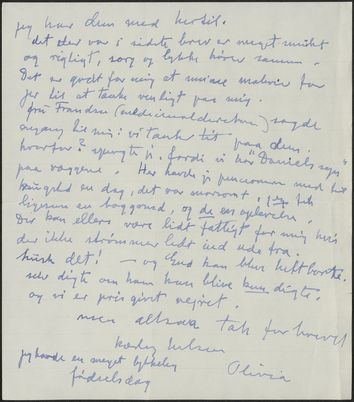 jeg har dem med hertil.
det der var i sidste brev er meget smukt
og rigtigt, sorg og lykke hører sammen.
Det er godt for mig at
jer til at tænke venligt paa mig.
fru Frandsen sagde
engang til mig: vi tænker tit paa dem.
hvorfor? spurgte jeg. fordi vi har "Daniels
paa væggene. Her havde vi
en dag, det var morsomt,
ligesom en baggrund, og de en oplevelse.
Der kan ellers være lidt fattigt for mig hvis
der ikke strømmer lidt ind ude fra.
husk det! - og Gud kan blive helt borte.
selv digte om ham kan blive kun digte.
og vi er prisgivet vejret.
men altsaa tak for brevet
kærlig hilsen
Olivia
jeg havde en meget lykkelig
fødselsdag